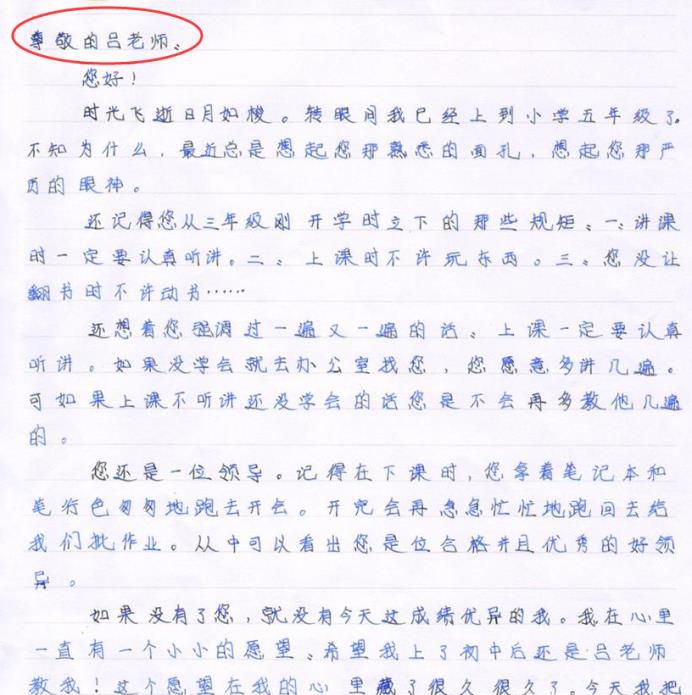 尊敬的吕老师、
您好！
时光飞逝日月如梭。转眼间我已经上到小学五年级了。
不知为什么，最近总是想起您那熟悉的面孔，想起您那严
历的眼神。
还记得您从三年级刚开学时立下的那些规矩、一、讲课
时一定要认真听讲。二、上课时不许玩东西。三、您没让
翻书时不许动书……
还想着您强调过一遍又一遍的话、上课一定要认真
听讲。如果没学会就去办公室找您，您愿意多讲几遍。
可如果上课不听讲还没学会的话您是不会再多教他几遍
的。
您还是一位领导。记得在下课时，您拿着笔记本和
笔行色匆匆地跑去开会。开完会再急急忙忙地跑回去给
我们批作业。从中可以看出您是位合格并且优秀的好领
导。
如果没有了您，就没有今天这成绩优异的我。我在心里
一直有一个小小的愿望、希望我上了初中后还是吕老师
教我！这个愿望在我的心里藏了很久很久了，今天我把